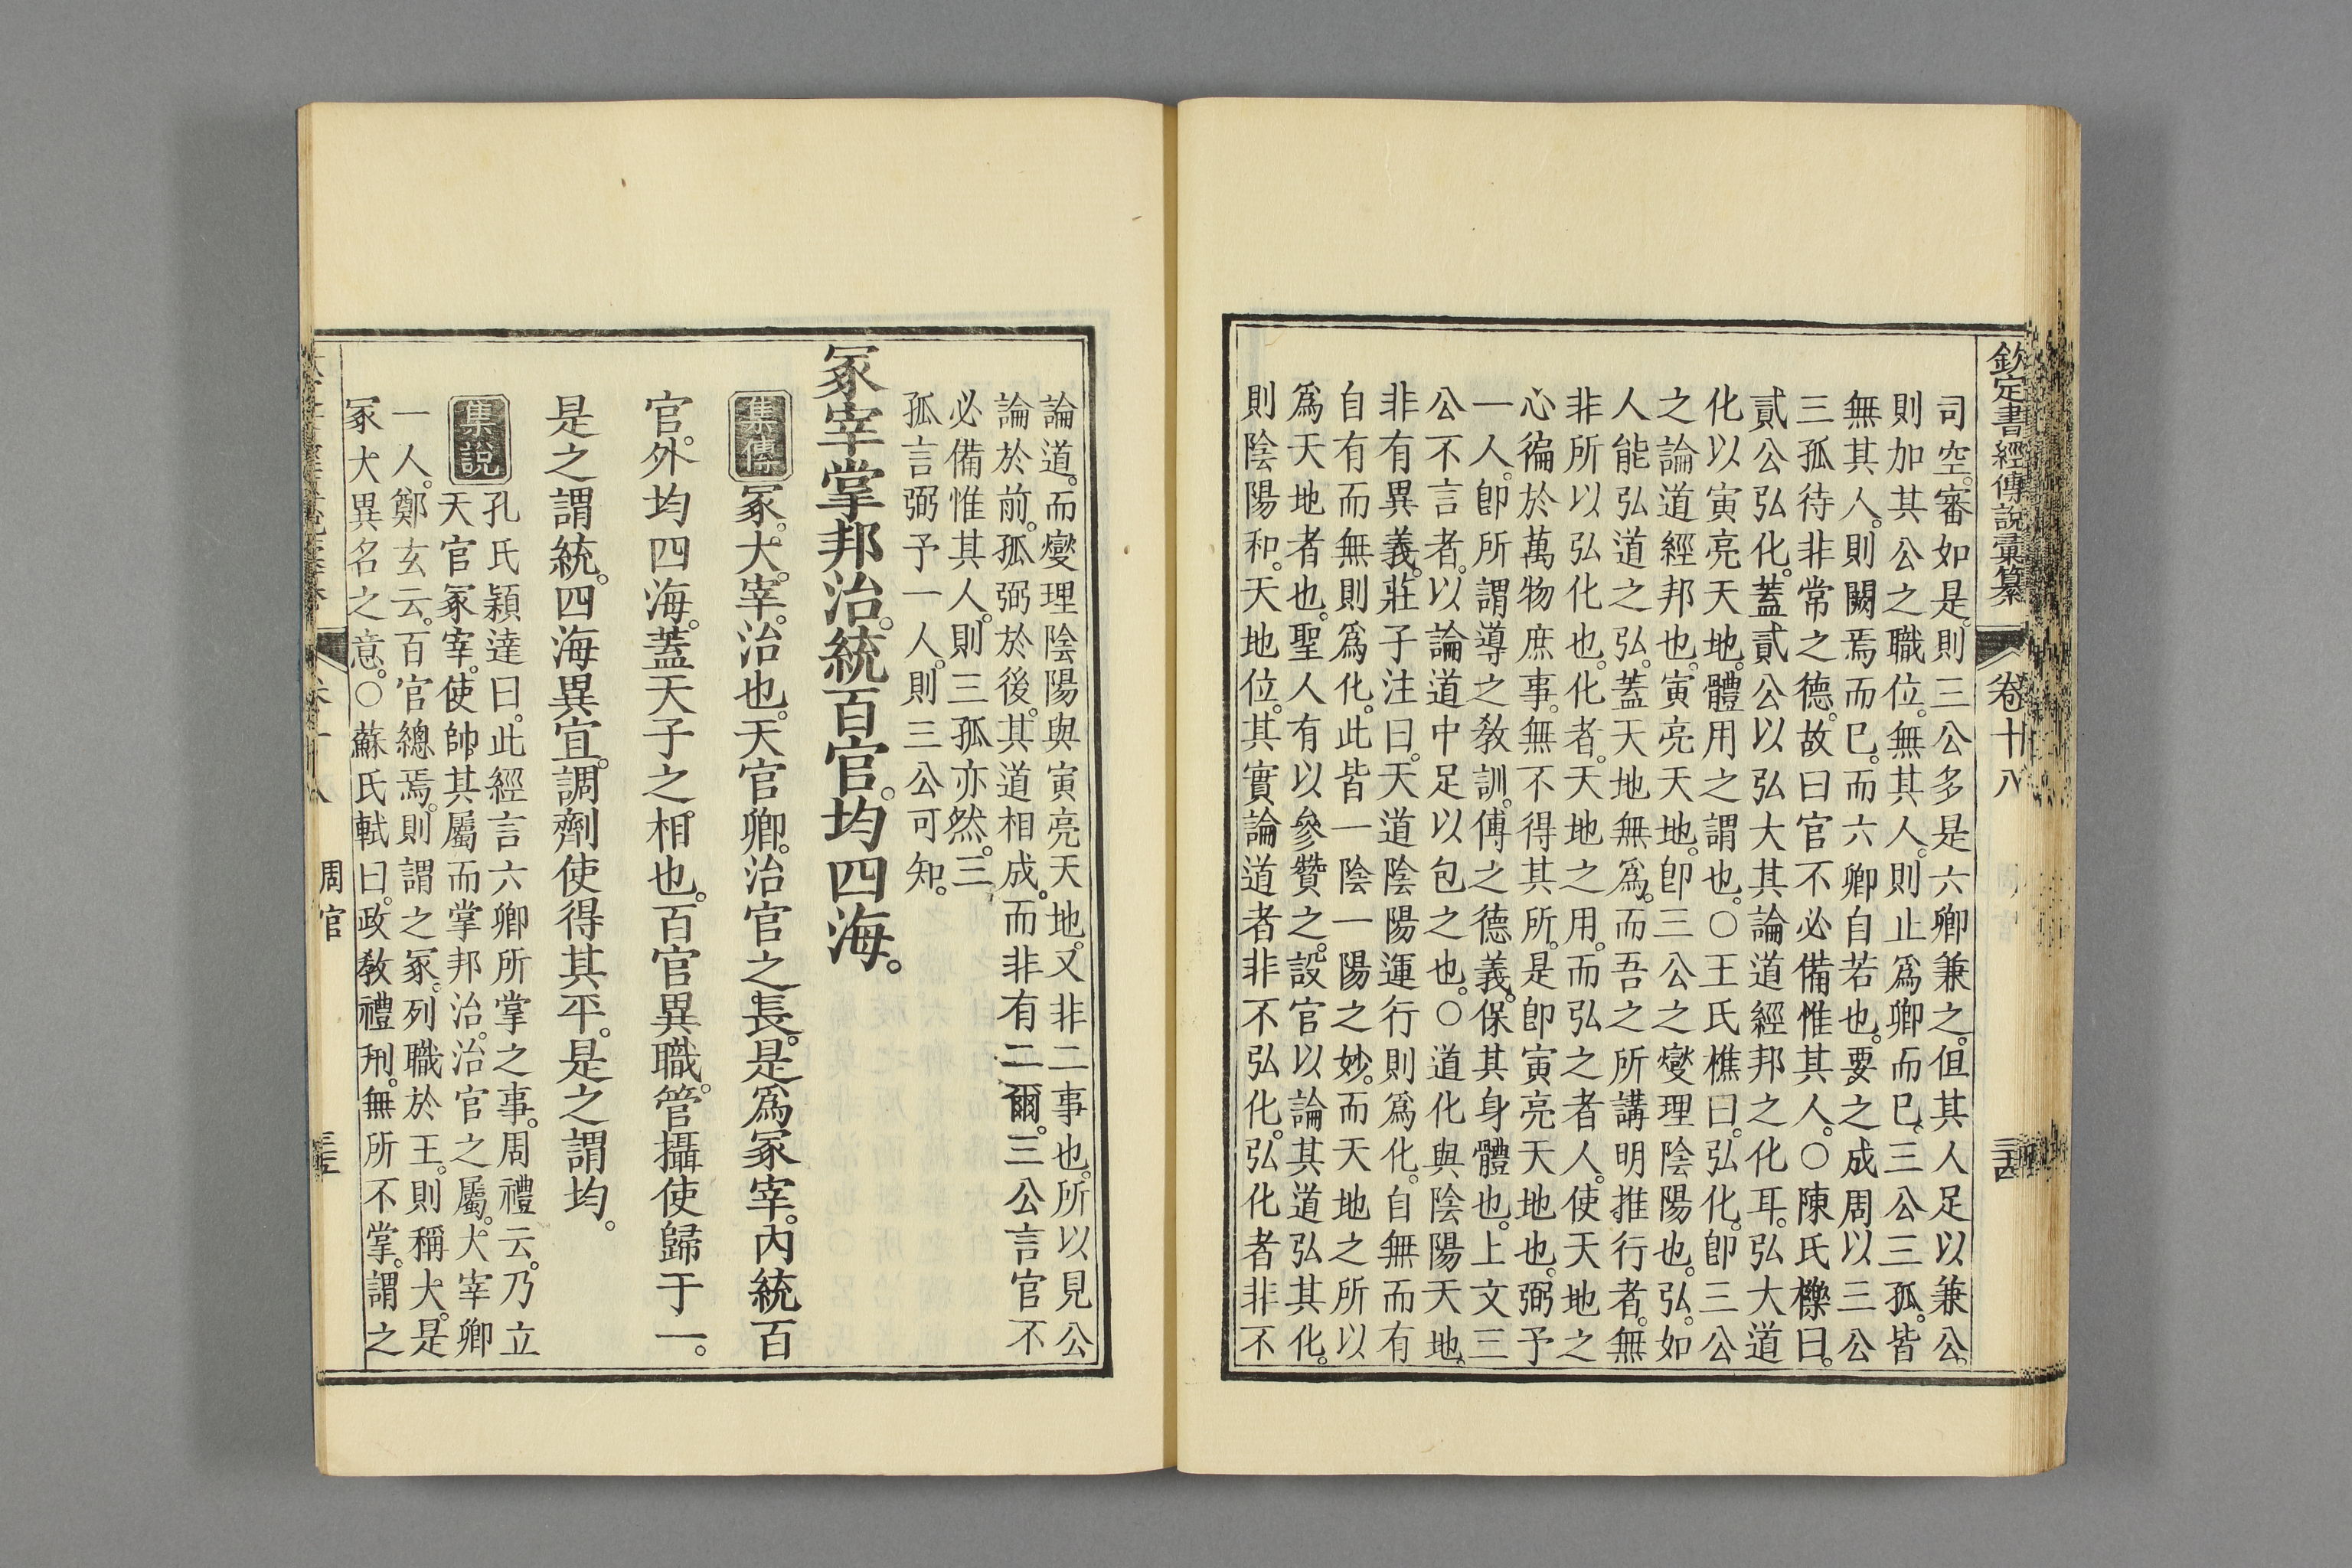 欽定書經傳說彙纂 卷十八
司空。審如是。則三公多是六卿兼之。但其人足以兼公。
則加其公之職位。無其人。則止爲卿而已。三公三孤。皆
無其人。則闕焉而已。而六卿自若也。要之成周以三公
三孤待非常之德。故曰官不必備惟其人。○陳氏櫟曰。
貳公弘化。蓋貳公以弘大其論道經邦之化耳。弘大道
化以寅亮天地。體用之謂也。○王氏樵曰。弘化。卽三公
之論道經邦也。寅亮天地。卽三公之燮理陰陽也。弘。如
人能弘道之弘。蓋天地無爲。而吾之所講明推行者。無
非所以弘化也。化者。天地之用。而弘之者人。使天地之
心徧於萬物庶事。無不得其所。是卽寅亮天地也。弼予
一人。卽所謂導之敎訓。傅之德義。保其身體也。上文三
公不言者。以論道中足以包之也。○道化與陰陽天地。
非有異義。莊子注曰。天道陰陽運行則爲化。自無而有
自有而無則爲化。此皆一陰一陽之妙。而天地之所以
爲天地者也。聖人有以參贊之。設官以論其道弘其化。
則陰陽和。天地位。其實論道者非不弘化。弘化者非不
論道。而燮理陰陽與寅亮天地。又非二事也。所以見公
論於前。孤弼於後。其道相成。而非有二爾。三公言官不
必備惟其人。則三孤亦然。三
孤言弼予一人。則三公可知。
冢宰掌邦治。統百官。均四海。
集傳 冢。大。宰。治也。天官卿。治官之長。是爲冢宰。內統百
官。外均四海。蓋天子之相也。百官異職。管攝使歸于一。
是之謂統。四海異宜。調劑使得其平。是之謂均。
集說 孔氏穎達曰。此經言六卿所掌之事。周禮云。乃立
天官冢宰。使帥其屬而掌邦治。治官之屬。大宰卿
一人。鄭玄云。百官總焉。則謂之冢。列職於王。則稱大。是
冢大異名之意。○蘇氏軾曰。政敎禮刑。無所不掌。謂之
周官